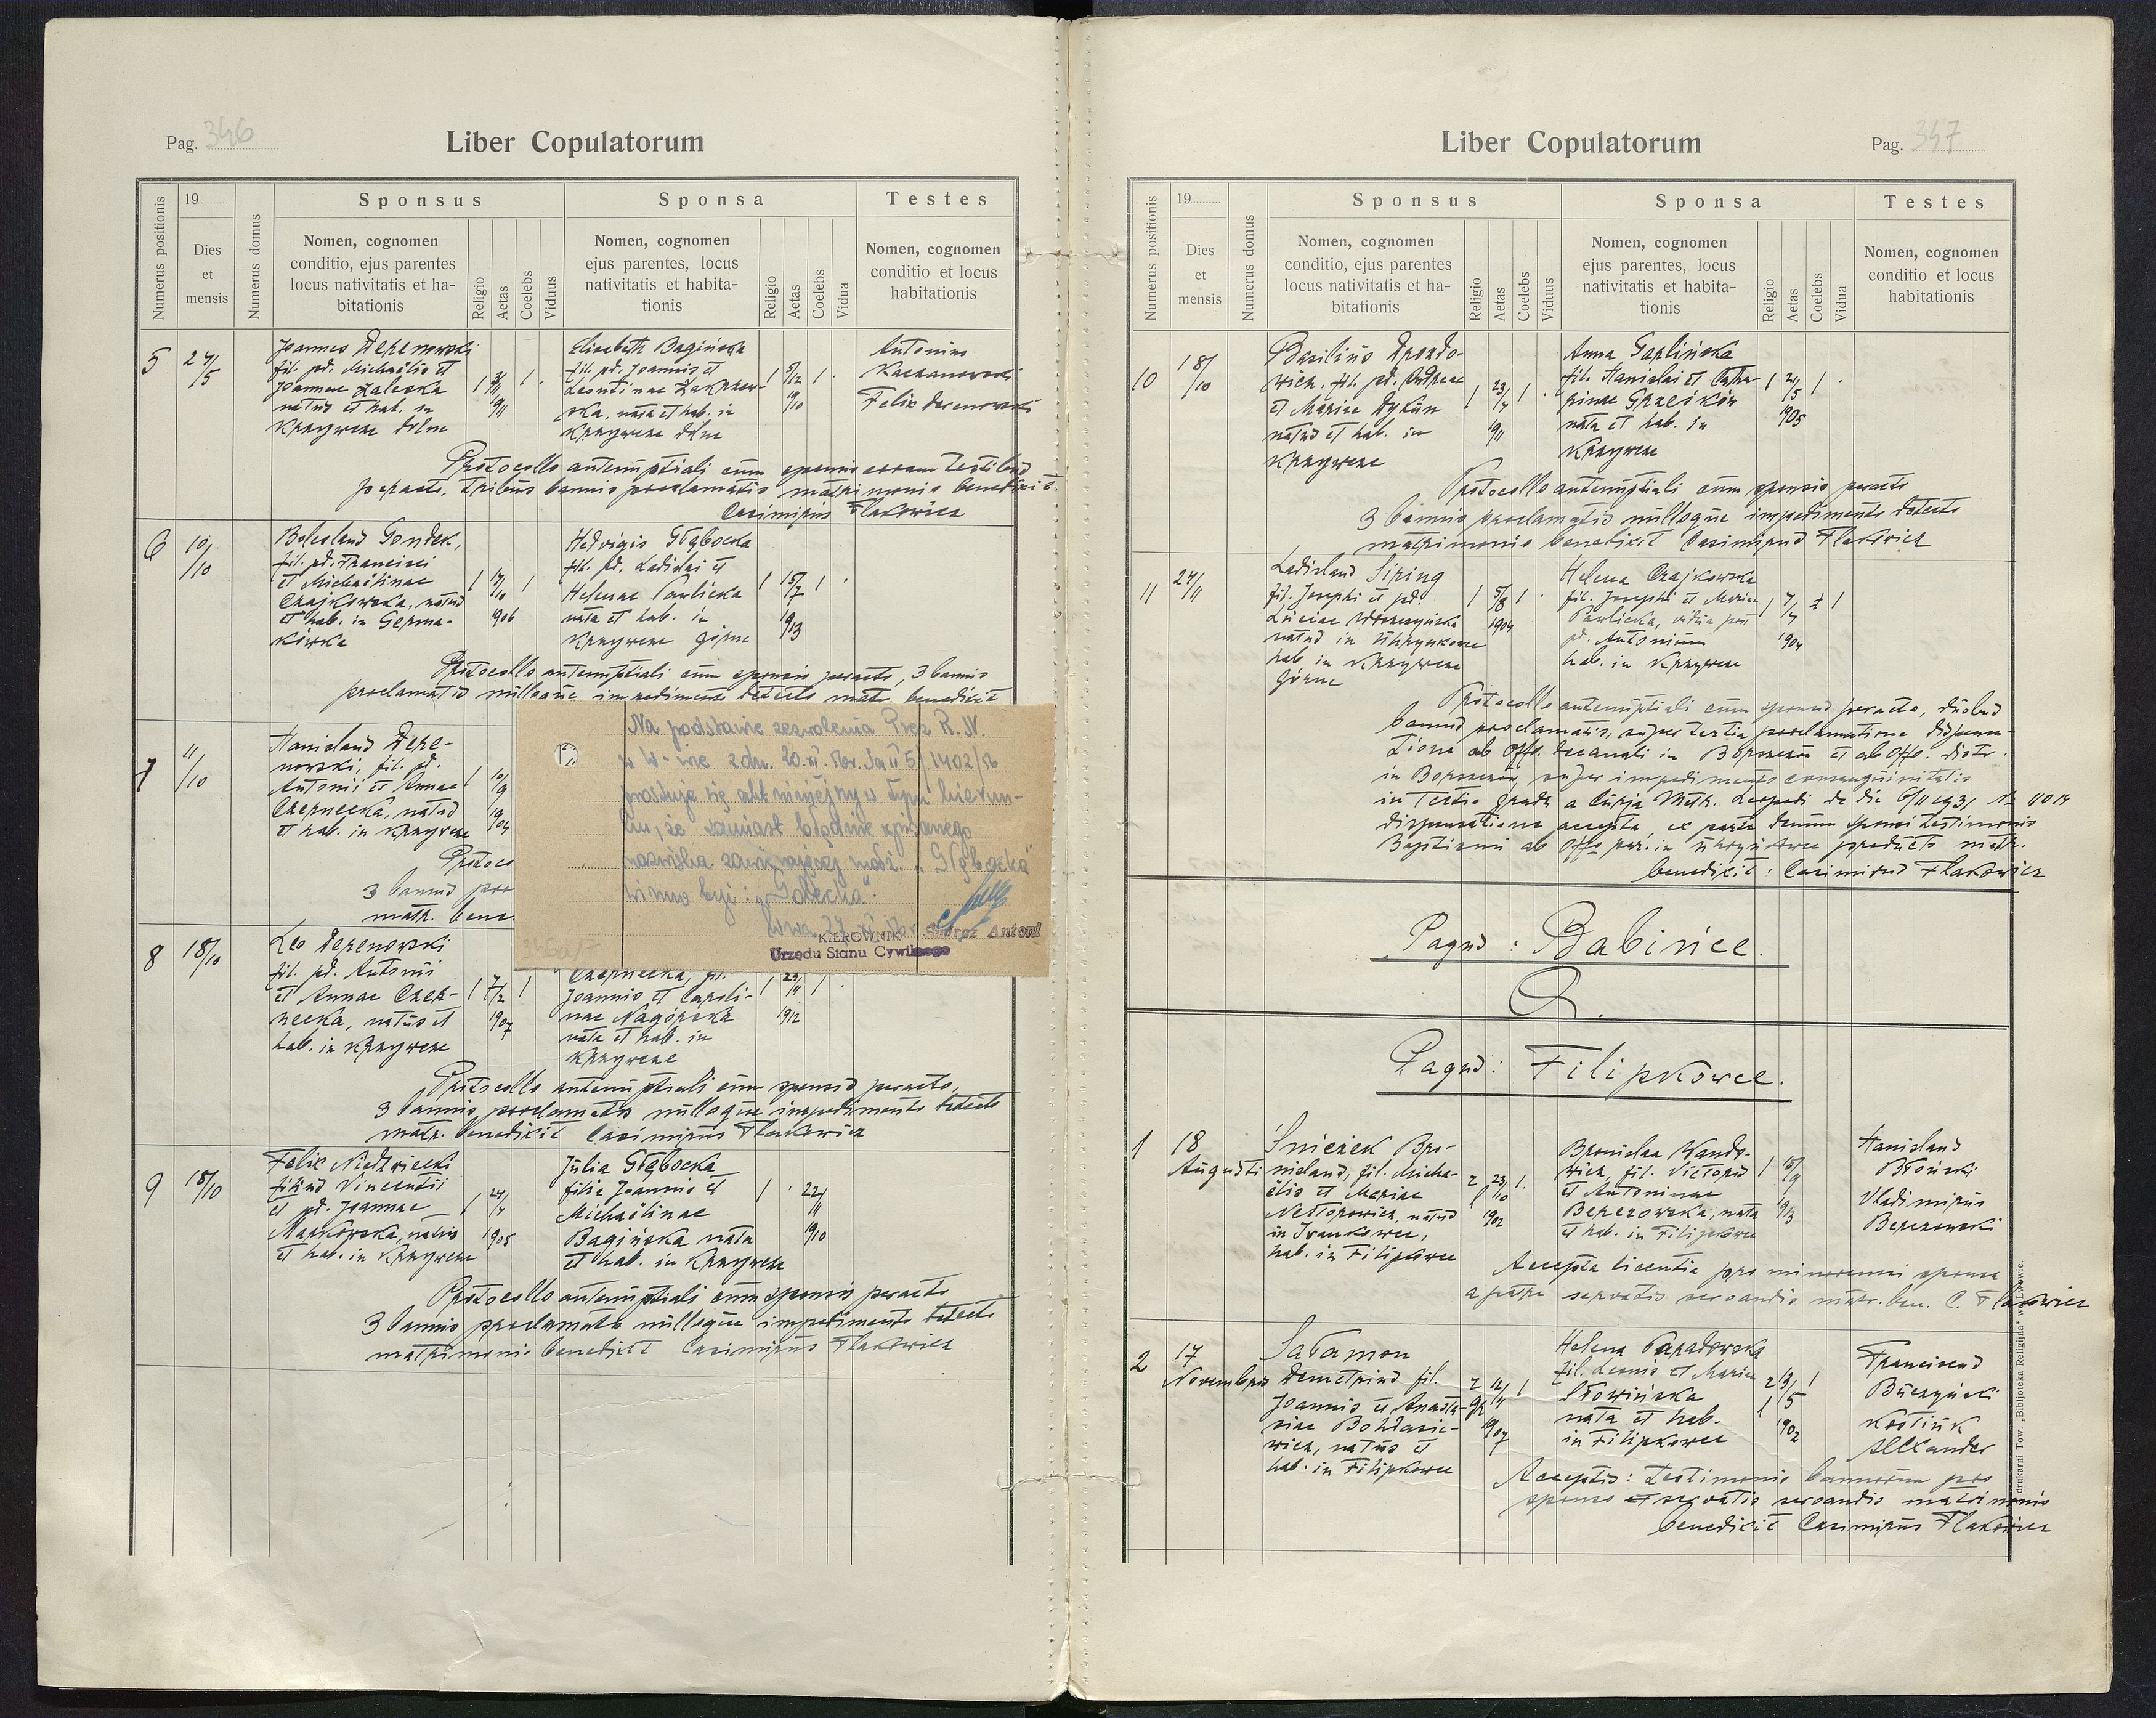 Pag. 346
Liber Copulatorum
Numerus positionis
19
Dies
et
mensis
Numerus domus
Sponsus
Nomen, cognomen
conditio, ejus parentes
locus nativitatis et ha-
bitationis
Religio
Aetas
Coelebs
Viduus
Sponsa
Nomen, cognomen
ejus parentes, locus
nativitatis et habita-
tionis
Religio
Aetas
Coelebs
Vidua
Testes
Nomen, cognomen
conditio et locus
habitationis
5
Joannes Derenowski
fil. pd. Michaëlis et
Joannae Zaleska
natus et hab. in
Krzywcze dolne
1911
Elisabeth Bagińska
fil. pd. Joannis et
nata et hab. in
Krzywcze dolne
5/12
1910
Antonius
Kaczanowski
Felix Derenowski
Protocollo antenuptiali cum sponsis coram testibus
peracto, tribus bannis proclamatis matrimonio benedixit
Casimirus Flakowicz
6
10/10
Boleslaus Gondek,
fil. pd. Francisci
et Michaëlinae
Czajkowska, natus
et hab. in Germa-
kówka
1906
Hedvigis Głębocka
fil. pd. Ladislai et
Helenae Pawlicka
nata et hab. in
Krzywcze górne
15/7
1913
Protocollo antenuptiali cum sponsis peracto, 3 bannis
proclamatis nulloque impedimento detecto matr. benedixit
7
11/10
Stanislaus Dere-
nowski, fil. pd.
Antonii et Annae
Czernecka, natus
et hab. in Krzywcze
10/9
1904
Protoco
3 bannis pro
matr. bene
Na podstawie zezwolenia Prez. R. N.
prostuje się akt niniejszy w tym kierun-
ku, że zamiast błędnie wpisanego
nazwiska zawierającej małż. „Głębocka"
winno być: „Sobecka".
KIEROWNIK
Urzędu Stanu Cywilnego
Antoni
8
18/10
Leo Derenowski
fil. pd. Antonii
et Annae Czer-
necka, natus et
hab. in Krzywcze
7/2
1907
Czernecka, fil.
Joannis et Caroli-
nae Nagórska
nata et hab. in
Krzywcze
1912
Protocollo antenuptiali cum sponsis peracto,
3 bannis proclamatis nulloque impedimento detecto
matr. benedixit Casimirus Flakowicz
9
18/10
Felix Niedzwiecki
filius Vincentii
et pd. Joannae
Markowska, natus
et hab. in Krzywcze
1905
Julia Głębocka
filia Joannis et
Michaëlinae
Bagińska nata
et hab. in Krzywcze
1910
Protocollo antenuptiali cum sponsis peracto
3 bannis proclamatis nulloque impedimento detecto
matrimonio benedixit Casimirus Flakowicz
Liber Copulatorum
Pag. 347
Numerus positionis
19
Dies
et
mensis
Numerus domus
Sponsus
Nomen, cognomen
conditio, ejus parentes
locus nativitatis et ha-
bitationis
Religio
Aetas
Coelebs
Viduus
Sponsa
Nomen, cognomen
ejus parentes, locus
nativitatis et habita-
tionis
Religio
Aetas
Coelebs
Vidua
Testes
Nomen, cognomen
conditio et locus
habitationis
10
18/10
Basilius Drozdo-
wicz, fil. pd. Andreae
et Mariae Dykun
natus et hab. in
Krzywcze
1911
Anna Garlińska
fil. Stanislai et Catha-
rinae Grześków
nata et hab. in
Krzywcze
1905
Protocollo antenuptiali cum sponsis peracto
3 bannis proclamatis nulloque impedimento detecto
matrimonio benedixit Casimirus Flakowicz
11
Ladislaus Siring
fil. Josephi et pd.
Luciae
natus in
hab. in Krzywcze
Górne
5/8
1904
Helena Czajkowska
fil. Josephi et Mariae
Pawlicka, vidua post
pd. Antonium
hab. in Krzywcze
1904
Protocollo antenuptiali cum sponsis peracto, duobus
bannis proclamatis, super tertia proclamatione dispensa-
tione ab Offo. decanali in Borszczów et ab Offo. distr.
in Borszczów, super impedimento consanguinitatis
in tertio gradu a Curja Metr. Leopoli de die 6/11 1931 №
dispensatione accepta, ex parte demum sponsi testimonio
Baptismi ab Offo par. in producto matr.
benedixit: Casimirus Flakowicz
Pagus: Babińce.
Pagus: Filipkowce.
1
18
Augusti
Śnieżek Bro-
nislaus, fil. Micha-
ëlis et Mariae
Nestorowicz, natus
in Iwankowce,
hab. in Filipkowce
1902
Bronislaa Kando-
wicz, fil. Victoris
et Antoninae
Berezowska, nata
et hab. in Filipkowce
1913
Stanislaus
Błoński
Vladimirus
Berezowski
Accepta licentia pro minorenni sponsa
a patre servatis servandis matr. ben. C. Flakowicz
2
17
Novembris
Sałamon
Demetrius fil.
Joannis et Anasta-
siae Bohdasie-
wicz, natus et
hab. in Filipkowce
1907
Helena Paradowska
fil. Leonis et Mariae
Słowińska
nata et hab.
in Filipkowce
1902
Franciscus
Buczyński
Kostiuk
Alexander
Acceptis: testimonio bannorum pro
sponso et servatis servandis matrimonio
benedixit Casimirus Flakowicz
drukarni Tow. „Bibljoteka Religijna" we Lwowie.